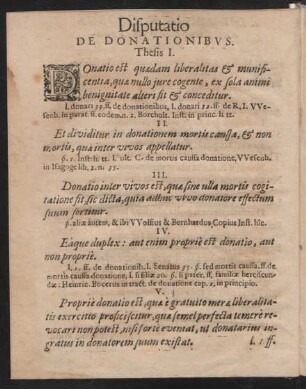 Disputatio
DE DONATIONIBVS.
Thesis I.
DOnatio est quædam liberalitas & munifi-
centia, qua nullo jure cogente, ex sola animi
benignitate alteri fit & conceditur.
l. donari 29. ff. de donationibus, l. donari 82. ff. de R. I. VVe-
senb. in parat. ff. eodem. n. 2. Borcholt. Inst. in princ. h. tt.
II.
Et dividitur in donationem mortis caussa, & non
mortis, quæ inter vivos appellatur.
§. 1. Inst. h. tt. l. ult. C. de mortis caussa donatione, VVesenb.
in Isagoge hîc, n. 35.
III.
Donatio inter vivos est, quæ sine ulla mortis cogi-
tatione fit, sic dicta, quia adhuc vivo donatore effectum
suum sortitur.
§. aliæ autem, & ibi VVolffius & Bernhardus Copius Inst. hîc.
IV.
Eaque duplex: aut enim propriè est donatio, aut
non propriè.
l. 1. ff. de donationib. l. Senatus 35. §. sed mortis caussa. ff. de
mortis caussa donatione, l. si filiæ 20. §. si pater. ff. familiæ herciscun-
dæ: Heinric. Bocerus in tract. de donatione cap. 2. in principio.
V.
Propriè donatio est, quæ è gratuito mera liberalita-
tis exercitio proficiscitur, quæ semel perfecta temerè re-
vocari non potest, nisi forte eveniat, ut donatarius in-
gratus in donatorem suum existat.
l. 1. ff.